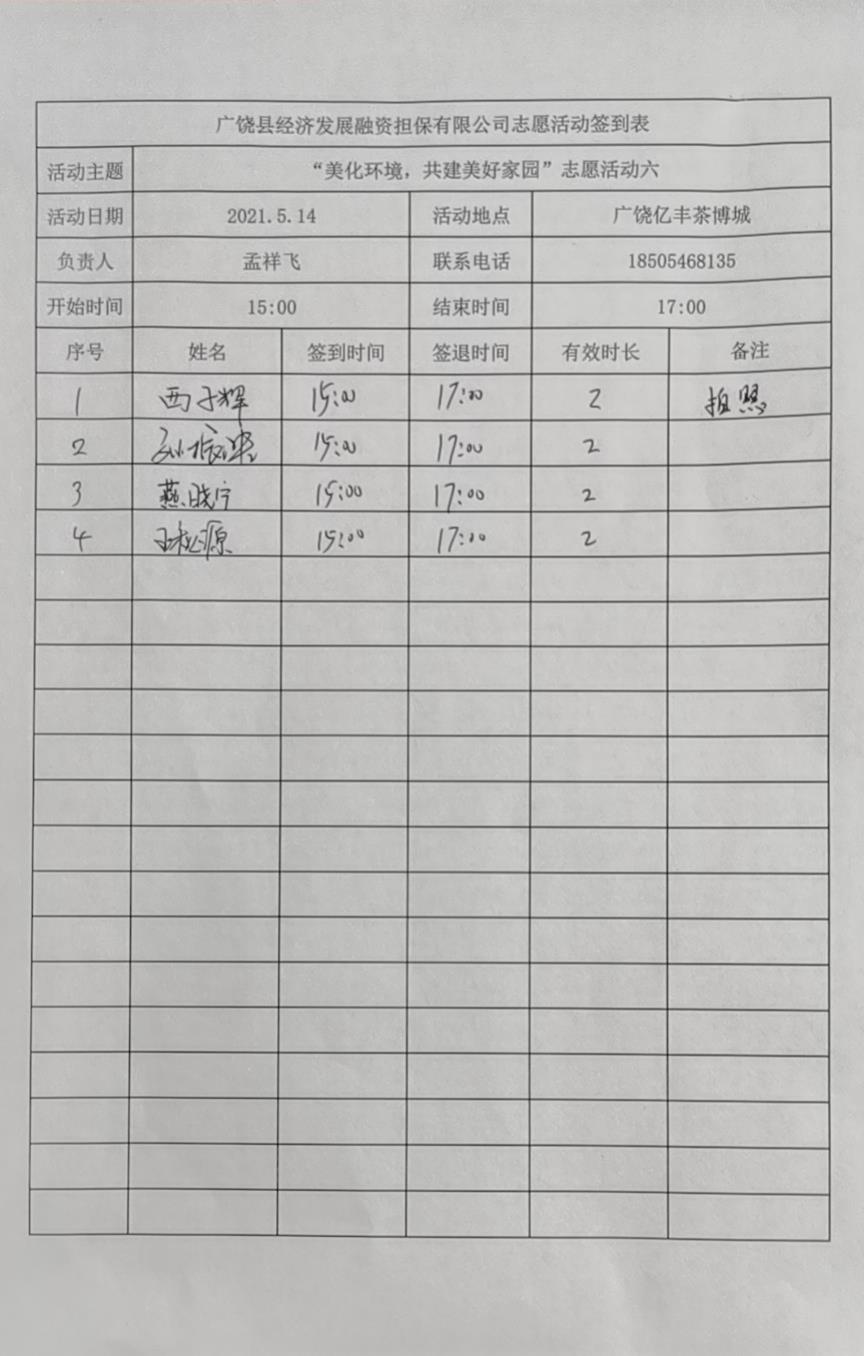 广饶县经济发展融资担保有限公司志愿活动签到表
活动主题 “美化环境，共建美好家园”志愿活动六
活动日期 2021.5.14 活动地点 广饶亿丰茶博城
负责人 孟祥飞 联系电话 18505468135
开始时间 15:00 结束时间 17:00
序号 姓名 签到时间 签退时间 有效时长 备注
1 西子辉 15:00 17:00 2 拍照
2 15:00 17:00 2
3 燕晓宁 15:00 17:00 2
4 15:00 17:00 2